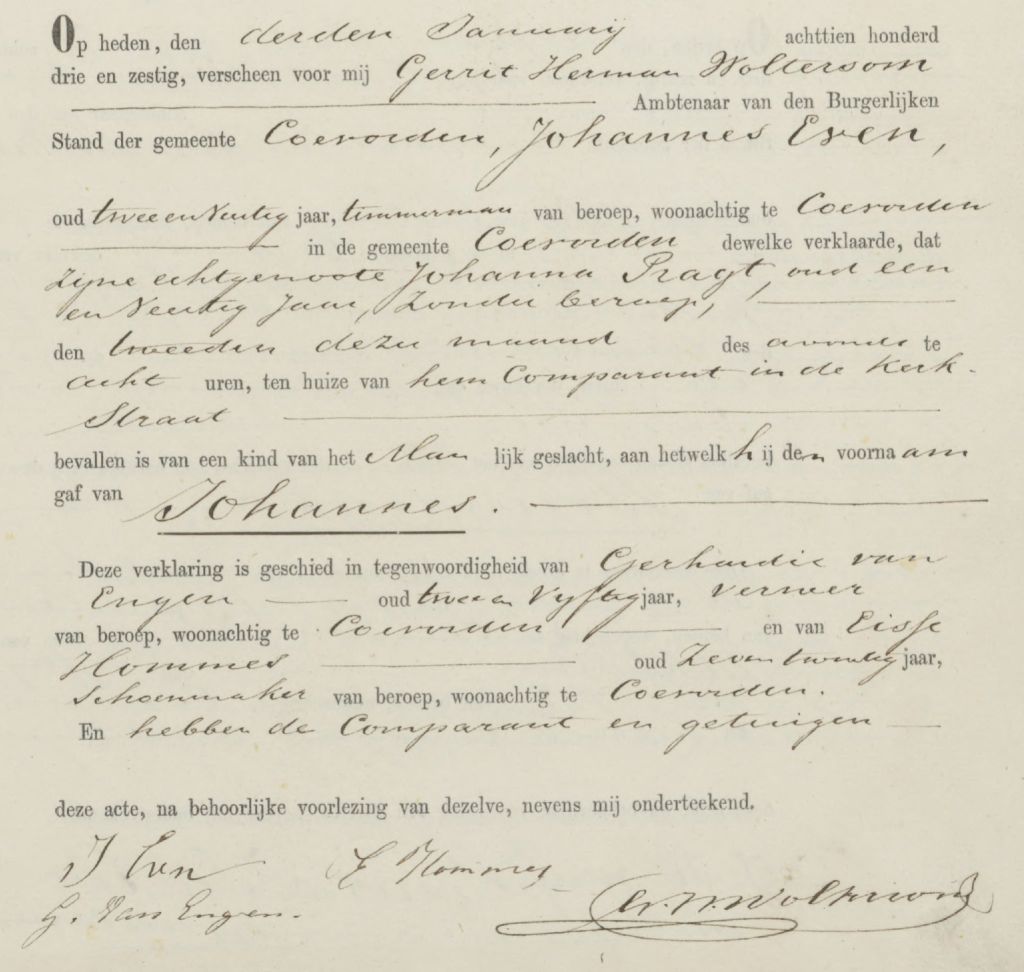 Op heden, den derden Januarij achttien honderd
drie en zestig, verscheen voor mij Gerrit Herman Woltersom
Ambtenaar van den Burgerlijken
Stand der gemeente Coevorden, Johannes Even,
oud twee en Veertig jaar, timmerman van beroep, woonachtig te Coevorden
in de gemeente Coevorden dewelke verklaarde, dat
zijne echtgenoote Johanna Pragt, oud een
en Veertig Jaar, Zonder beroep,
den tweeden dezer maand des avonds te
acht uren, ten huize van hem Comparant in de Kerk-
Straat
bevallen is van een kind van het Man lijk geslacht, aan hetwelk hij den voornaam
gaf van Johannes.
Deze verklaring is geschied in tegenwoordigheid van Gerhardie van
Engen oud twee en Vyftig jaar, verwer
van beroep, woonachtig te Coevorden en van Eisse
Hommes oud Zeven twintig jaar,
Schoenmaker van beroep, woonachtig te Coevorden.
En hebben de Comparant en getuigen
deze acte, na behoorlijke voorlezing van dezelve, nevens mij onderteekend.
J Even E Hommes
G. Van Engen. G. H. Woltersom